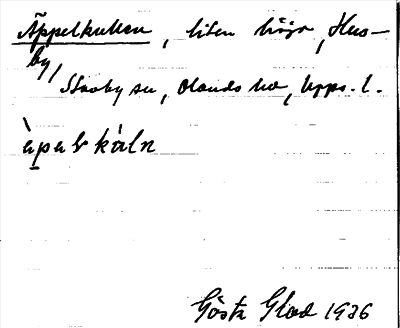 Äppelkullen, liten höjd, Hus-
by, Skoby sn, Olands hd, Upps. l.
Gösta Glad 1936